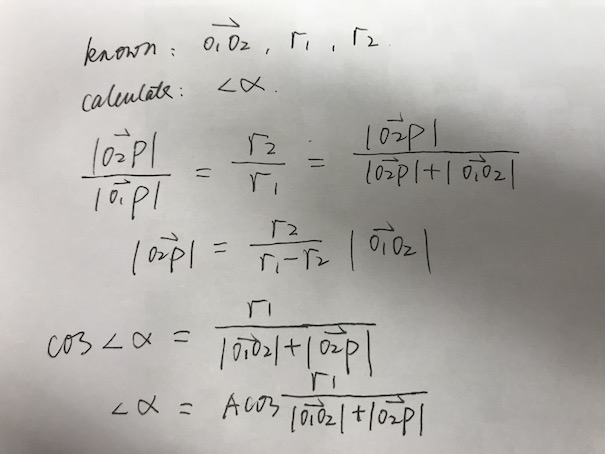 known: $\overrightarrow{o_1o_2}$, $r_1$, $r_2$
calculate: $\angle\alpha$.
$\frac{|\overrightarrow{o_2p}|}{|\overrightarrow{o_1p}|} = \frac{r_2}{r_1} = \frac{|\overrightarrow{o_2p}|}{|\overrightarrow{o_2p}|+|\overrightarrow{o_1o_2}|}$
$|\overrightarrow{o_2p}| = \frac{r_2}{r_1-r_2} |\overrightarrow{o_1o_2}|$
$\cos\angle\alpha = \frac{r_1}{|\overrightarrow{o_1o_2}|+|\overrightarrow{o_2p}|}$
$\angle\alpha = A\cos\frac{r_1}{|\overrightarrow{o_1o_2}|+|\overrightarrow{o_2p}|}$